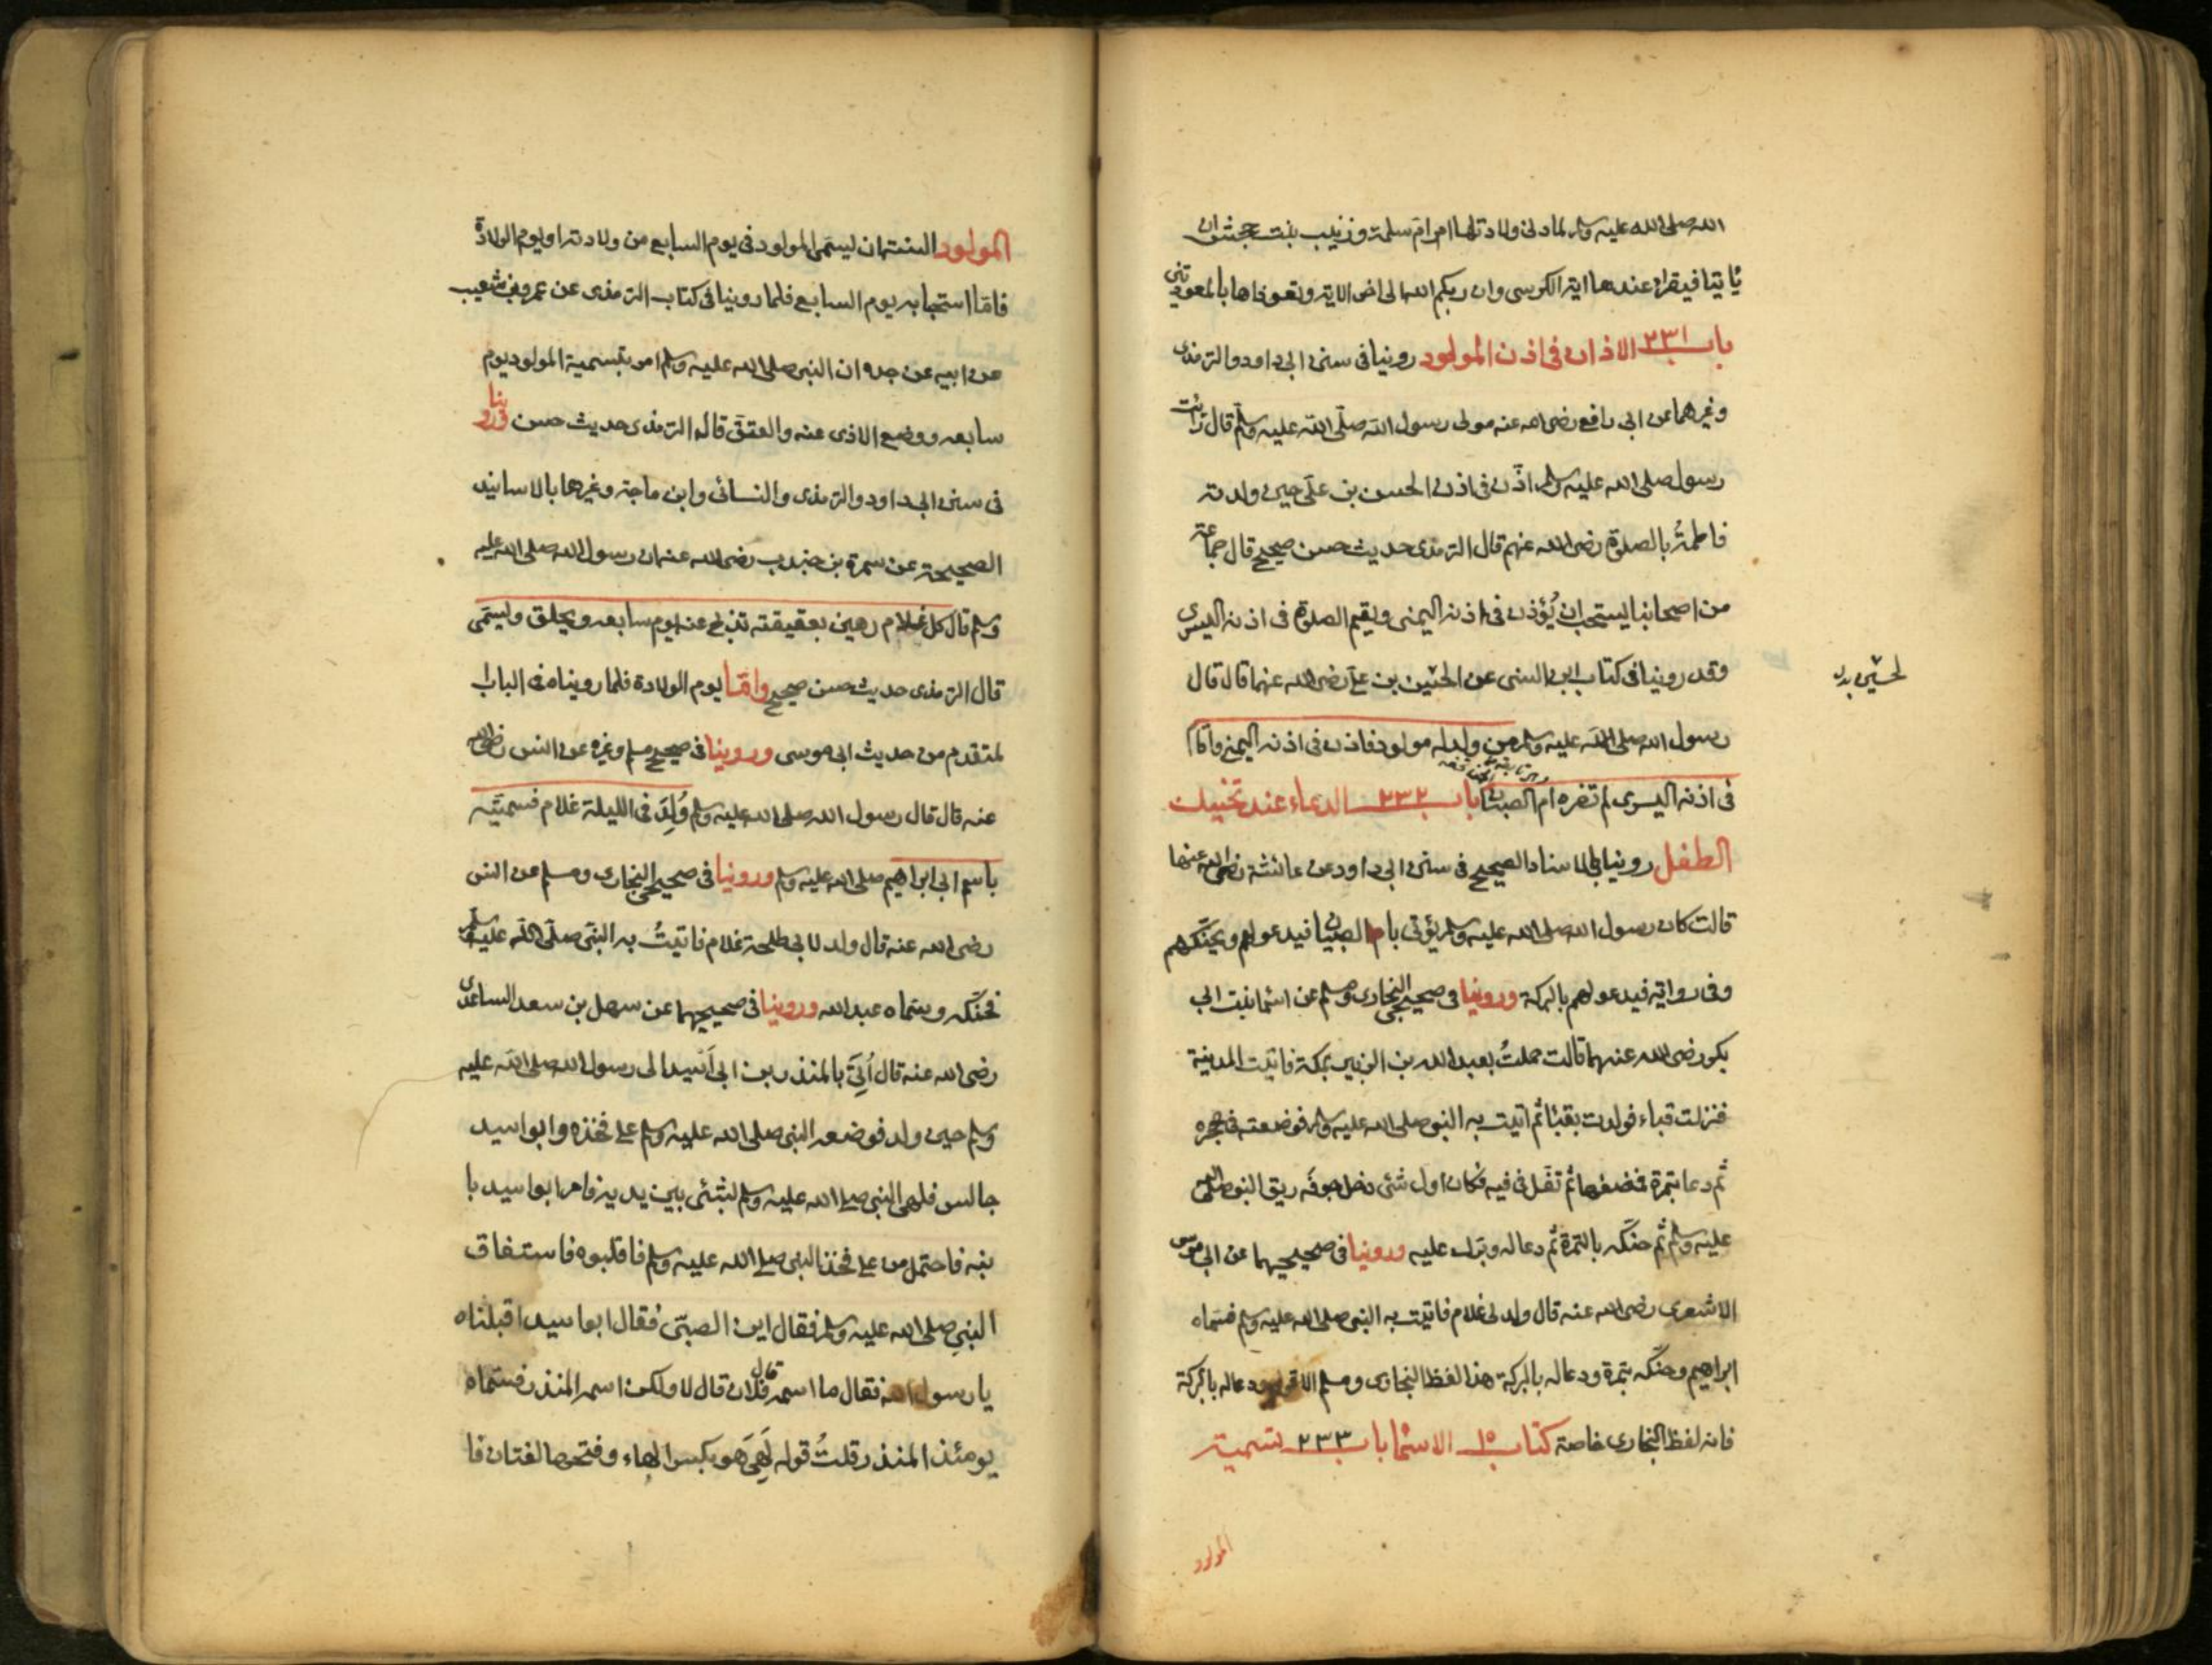 الله صلى الله عليه وسلم لما دنى ولادتها امر ام سلمة وزينب بنت جحش ان
ياتيا فيقراء عندها اية الكرسى وان ربكم الله الى اخر الاية وتعوذاها بالمعوذتين
باب ٢٣١ الاذان فى اذن المولود روينا فى سنن ابى داود والترمذى
وغيرهما عن ابى رافع رضى الله عنه مولى رسول الله صلّى الله عليه وسلّم قال رايت
رسول صلى الله عليه وسلم اذّن فى اذن الحسن بن علّى حين ولدته
فاطمةُ بالصلوة رضى الله عنهم قال الترمذى حديث حسن صحيح قال جماعة
من اصحابنا يستحب ان يُؤذن فى اذنه اليمنى ويقيم الصلوة فى اذنه اليسرى
وقد روينا فى كتاب ابن السنى عن الحسين بن على رضى الله عنهما قال قال
رسول الله صلى الله عليه وسلم من ولد له مولود فاذن فى اذنه اليمنى واقام
فى اذنه اليسرى لم تضره ام الصبيان باب ٢٣٢ الدعاء عند تحنيك
الطفل روينا بالاسناد الصحيح فى سنن ابى داود عن عائشة رضى الله عنها
قالت كان رسول الله صلى الله عليه وسلم يؤتى بالصبيان فيدعو لهم ويحنّكهم
وفى رواية فيدعو لهم بالبركة وروينا فى صحيحى البخارى ومسلم عن اسما بنت ابى
بكر رضى الله عنهما قالت حملتُ بعبد الله بن الزبير بمكة فاتيت المدينة
فنزلت قباء فولدت بقبا ثم اتيت به النبى صلى الله عليه وسلم فوضعته فى حجره
ثم دعا بتمرة فمضغها ثم تفل فى فيه فكان اول شئى دخل جوفه ريق النبى صلى الله
عليه وسلم ثم حنّكه بالتمرة ثم دعا له وبرك عليه وروينا فى صحيحيهما عن ابى موسى
الاشعرى رضى الله عنه قال ولد لى غلام فاتيت به النبى صلى الله عليه وسلم فسماه
ابراهيم وحنّكه بتمرة ودعا له بالبركة هذا لفظ البخارى ومسلم الا قوله ودعا له بالبركة
فانه لفظ البخارى خاصة كتاب ١٥ الاسما باب ٢٣٣ تسمية
المولود
المولود السنة ان يسمى المولود فى يوم السابع من ولادته او يوم الولادة
فامّا استحبابه يوم السابع فلما روينا فى كتاب الترمذى عن عمرو بن شعيب
عن ابيه عن جده ان النبى صلى الله عليه وسلم امر بتسمية المولود يوم
سابعه ووضع الاذى عنه والعقق قال الترمذى حديث حسن وروينا
فى سنن ابى داود والترمذى والنسائى وابن ماجة وغيرها بالاسانيد
الصحيحة عن سمرة بن جندب رضى الله عنه ان رسول الله صلى الله عليه
وسلم قال كل غلام رهين بعقيقته تذبح عنه يوم سابعه ويحلق ويسمّى
قال الترمذى حديث حسن صحيح وامّا يوم الولادة فلما رويناه فى الباب ا
لمتقدم من حديث ابى موسى وروينا فى صحيح مسلم وغيره عن انس رضى الله
عنه قال قال رسول الله صلى الله عليه وسلم وُلِدَ فى الليلة غلام فسميّته
باسم ابى ابراهيم صلى الله عليه وسلم وروينا فى صحيحى البخارى ومسلم عن انس
رضى الله عنه قال ولد لابى طلحة غلام فاتيتُ به النبىّ صلّى الله عليه وسلم
فحنّكه وسمّاه عبد الله وروينا فى صحيحيهما عن سهل بن سعد الساعدى
رضى الله عنه قال اُتِىَ بالمنذر بن ابى اُسيد الى رسول الله صلى الله عليه
وسلم حين ولد فوضعه النبى صلى الله عليه وسلم على فخذه وابو اسيد
جالس فلهى النبى صلى الله عليه وسلم بشئى بين يديه فامر ابو اسيد با
بنه فاحتمل من على فخذ النبى صلى الله عليه وسلم فاقلبوه فاستفاق
النبى صلى الله عليه وسلم فقال اين الصبىّ فقال ابو اسيد اقبلناه
يا رسول الله فقال ما اسمه قال فلان قال لا ولكن اسمه المنذر فسمّاه
يومئذ المنذر قلتُ قوله لَهِىَ هو بكسر الهاء وفتحها لغتان فا